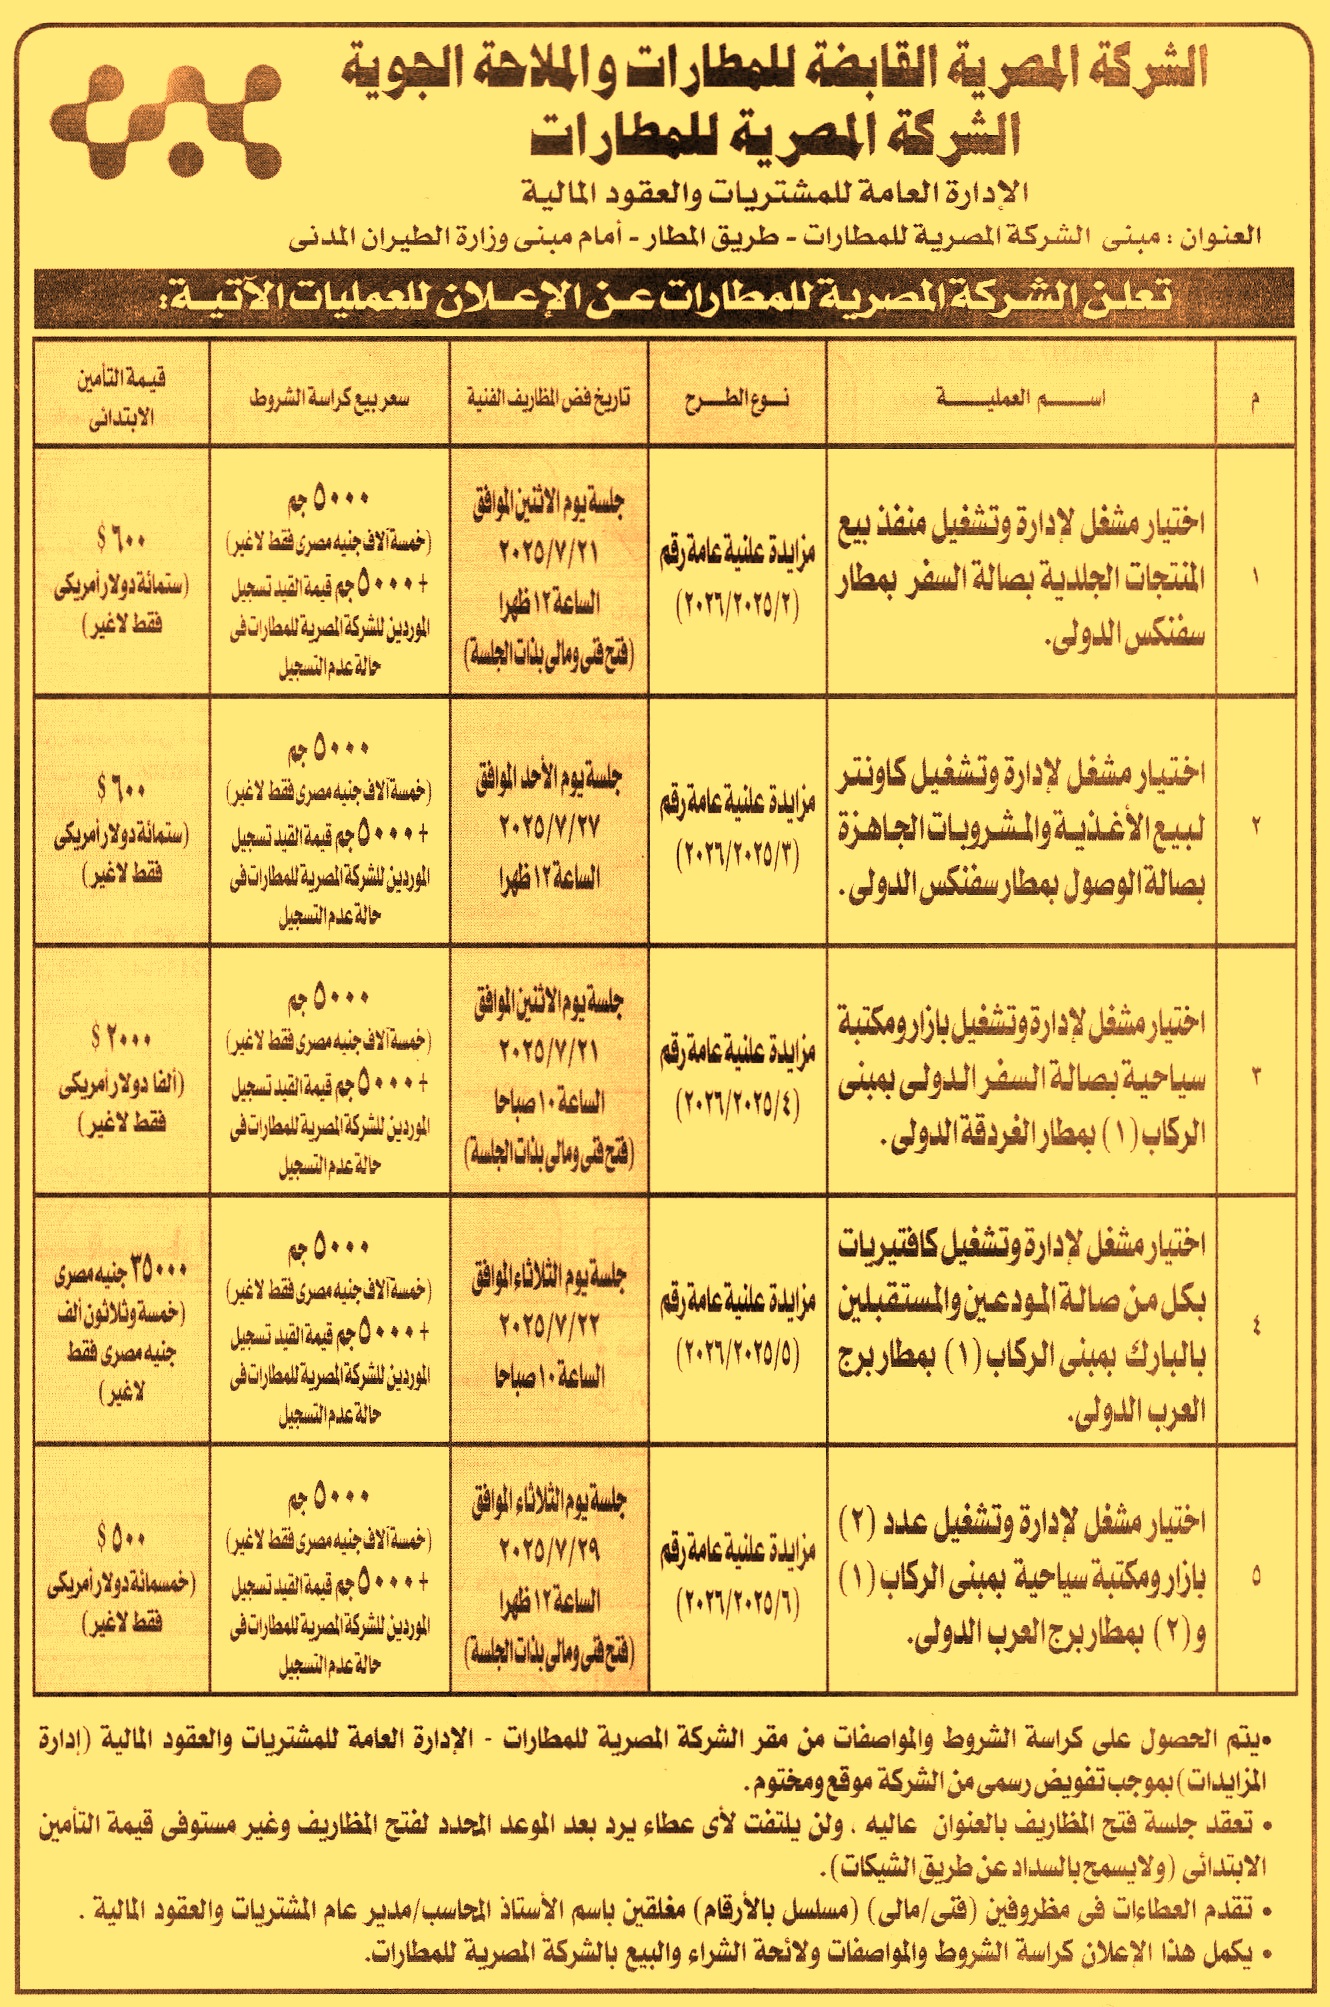 الشركة المصرية القابضة للمطارات والملاحة الجوية
الشركة المصرية للمطارات
الإدارة العامة للمشتريات والعقود المالية
العنوان : مبنى الشركة المصرية للمطارات - طريق المطار - أمام مبنى وزارة الطيران المدنى
تعلن الشركة المصرية للمطارات عن الإعلان للعمليات الآتية:
م
اسم العملية
نوع الطرح
تاريخ فض المظاريف الفنية
سعر بيع كراسة الشروط
قيمة التأمين
الابتدائى
١
اختيار مشغل لإدارة وتشغيل منفذ بيع
المنتجات الجلدية بصالة السفر بمطار
سفنكس الدولى.
مزايدة علنية عامة رقم
(٢٠٢٦/٢٠٢٥/٢)
جلسة يوم الاثنين الموافق
٢٠٢٥/٧/٢١
الساعة ١٢ ظهرا
(فتح فنى ومالى بذات الجلسة)
٥٠٠٠ جم
(خمسة آلاف جنيه مصرى فقط لاغير)
+ ٥٠٠٠ جم قيمة القيد تسجيل
الموردين للشركة المصرية للمطارات فى
حالة عدم التسجيل
٦٠٠ $
(ستمائة دولار أمريكى
فقط لاغير)
٢
اختيار مشغل لإدارة وتشغيل كاونتر
لبيع الأغذية والمشروبات الجاهزة
بصالة الوصول بمطار سفنكس الدولى .
مزايدة علنية عامة رقم
(٢٠٢٦/٢٠٢٥/٣)
جلسة يوم الأحد الموافق
٢٠٢٥/٧/٢٧
الساعة ١٢ ظهرا
٥٠٠٠ جم
(خمسة آلاف جنيه مصرى فقط لاغير)
+ ٥٠٠٠ جم قيمة القيد تسجيل
الموردين للشركة المصرية للمطارات فى
حالة عدم التسجيل
٦٠٠ $
(ستمائة دولار أمريكى
فقط لاغير)
٣
اختيار مشغل لإدارة وتشغيل بازار ومكتبة
سياحية بصالة السفر الدولى بمبنى
الركاب (١) بمطار الغردقة الدولى .
مزايدة علنية عامة رقم
(٢٠٢٦/٢٠٢٥/٤)
جلسة يوم الاثنين الموافق
٢٠٢٥/٧/٢١
الساعة ١٠ صباحا
(فتح فنى ومالى بذات الجلسة)
٥٠٠٠ جم
(خمسة آلاف جنيه مصرى فقط لاغير)
+ ٥٠٠٠ جم قيمة القيد تسجيل
الموردين للشركة المصرية للمطارات فى
حالة عدم التسجيل
٢٠٠٠ $
(ألفا دولار أمريكى
فقط لاغير)
٤
اختيار مشغل لإدارة وتشغيل كافتيريات
بكل من صالة المودعين والمستقبلين
بالبارك بمبنى الركاب (١) بمطار برج
العرب الدولى.
مزايدة علنية عامة رقم
(٢٠٢٦/٢٠٢٥/٥)
جلسة يوم الثلاثاء الموافق
٢٠٢٥/٧/٢٢
الساعة ١٠ صباحا
٥٠٠٠ جم
(خمسة آلاف جنيه مصرى فقط لاغير)
+ ٥٠٠٠ جم قيمة القيد تسجيل
الموردين للشركة المصرية للمطارات فى
حالة عدم التسجيل
٣٥٠٠٠ جنيه مصرى
(خمسة وثلاثون ألف
جنيه مصرى فقط
لاغير)
٥
اختيار مشغل لإدارة وتشغيل عدد (٢)
بازار ومكتبة سياحية بمبنى الركاب (١)
و(٢) بمطار برج العرب الدولى.
مزايدة علنية عامة رقم
(٢٠٢٦/٢٠٢٥/٦)
جلسة يوم الثلاثاء الموافق
٢٠٢٥/٧/٢٩
الساعة ١٢ ظهرا
(فتح فنى ومالى بذات الجلسة)
٥٠٠٠ جم
(خمسة آلاف جنيه مصرى فقط لاغير)
+ ٥٠٠٠ جم قيمة القيد تسجيل
الموردين للشركة المصرية للمطارات فى
حالة عدم التسجيل
٥٠٠ $
(خمسمائة دولار أمريكى
فقط لاغير)
•يتم الحصول على كراسة الشروط والمواصفات من مقر الشركة المصرية للمطارات - الإدارة العامة للمشتريات والعقود المالية (إدارة
المزايدات) بموجب تفويض رسمى من الشركة موقع ومختوم .
• تعقد جلسة فتح المظاريف بالعنوان عاليه ، ولن يلتفت لأى عطاء يرد بعد الموعد المحدد لفتح المظاريف وغير مستوفى قيمة التأمين
الابتدائى (ولايسمح بالسداد عن طريق الشيكات) .
• تقدم العطاءات فى مظروفين (فنى/مالى) (مسلسل بالأرقام) مغلقين باسم الأستاذ المحاسب/مدير عام المشتريات والعقود المالية .
• يكمل هذا الإعلان كراسة الشروط والمواصفات ولائحة الشراء والبيع بالشركة المصرية للمطارات.